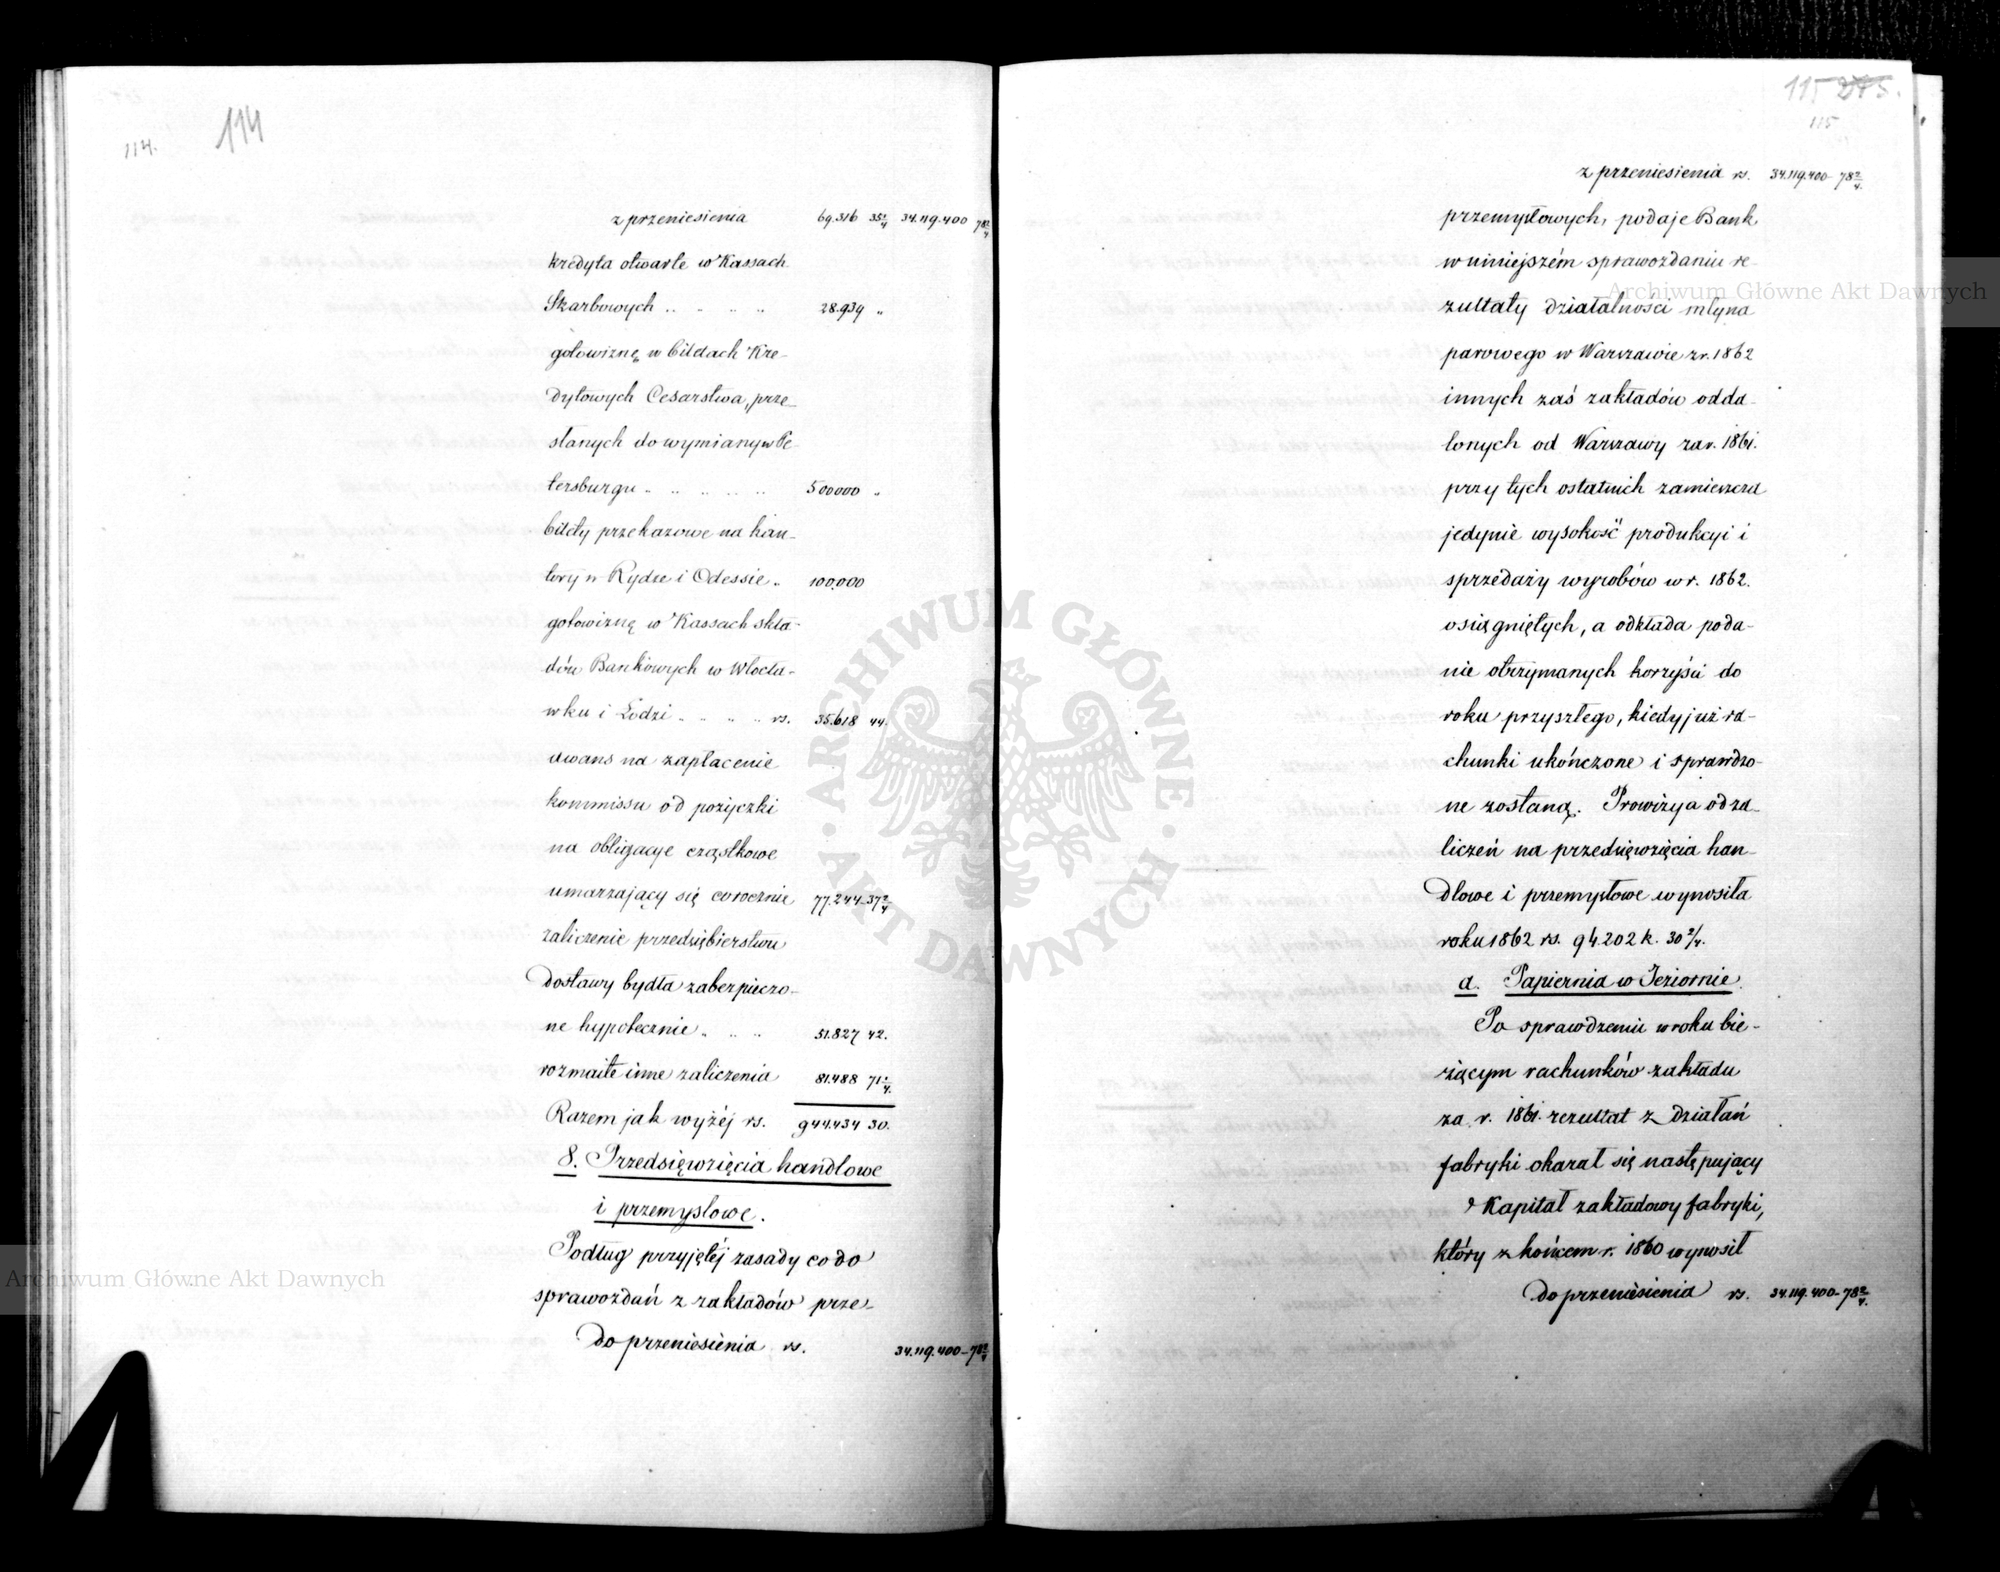 114.
114
z przeniesienia 69.316 35 2/4 34.119.400 78 2/4
kredyta otwarte w Kassach
Skarbowych .. .. .. .. 28.939 „
gotowiznę w biletach Kre-
dytowych Cesarstwa, prze-
słanych do wymiany w Pe-
tersburgu .. .. .. .. .. 500000 „
bilety przekazowe na kan-
tory w Rydze i Odessie .. 100.000
gotowiznę w Kassach skła-
dów Bankowych w Włocła-
wku i Łodzi .. .. .. .. rs. 35.618 44.
awans na zapłacenie
kommissu od pożyczki
na obligacje cząstkowe
umarzający się corocznie 77.244-37 2/4
zaliczenie przedsiębierstwu
dostawy bydła zabezpieczo-
ne hypotecznie .. .. .. 51.827 42.
rozmaite inne zaliczenia 81.488 71 1/4.
Razem jak wyżéj rs. 944.434 30.
8. Przedsięwzięcia handlowe
i przemysłowe.
Podług przyjętéj zasady co do
sprawozdań z zakładów prze-
do przeniesienia rs. 34.119.400-78 2/4
115 275.
115
z przeniesienia rs. 34.119.400-78 2/4.
przemysłowych, podaje Bank
w niniejszém sprawozdaniu re-
zultaty działalności młyna
parowego w Warszawie z r. 1862
innych zaś zakładów odda-
lonych od Warszawy za r. 1861.
przy tych ostatnich zamieszcza
jedynie wysokość produkcyi i
sprzedaży wyrobów w r. 1862.
osiągniętych, a odkłada poda-
nie otrzymanych korzyści do
roku przyszłego, kiedy już ra-
chunki ukończone i sprawdzo-
ne zostaną. Prowizya od za-
liczeń na przedsięwzięcia han-
dlowe i przemysłowe wynosiła
roku 1862 rs. 94.202 k. 30 2/4.
a. Papiernia w Jeziornie.
Po sprawdzeniu w roku bie-
żącym rachunków zakładu
za r. 1861. rezultat z działań
fabryki okazał się następujący
Kapitał zakładowy fabryki,
który z końcem r. 1860 wynosił
do przeniesienia rs. 34.119.400-78 2/4.
Archiwum Główne Akt Dawnych
Archiwum Główne Akt Dawnych
ARCHIWUM GŁÓWNE · AKT DAWNYCH ·